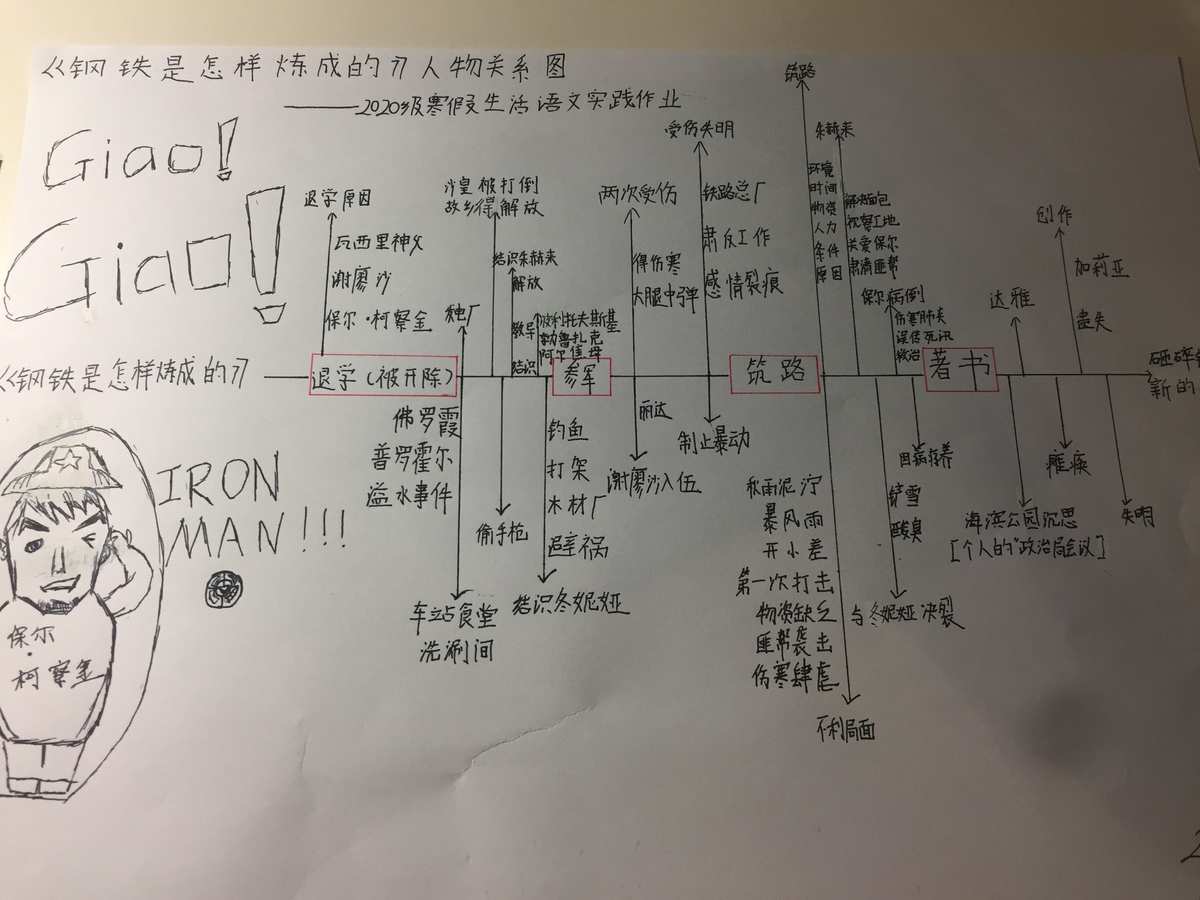 《钢铁是怎样炼成的》人物关系图
——2020级寒假生活语文实践作业
Giao!
Giao!
退学原因
瓦西里神父
谢廖沙
保尔·柯察金
沙皇被打倒
故乡得解放
结识朱赫来
解放
教导
结识
彼利托夫斯基
勃鲁扎克
两次受伤
得伤寒
大腿中弹
受伤失明
铁路总厂
肃反工作
感情裂痕
筑路
环境
时间
物资
人力
条件
原因
朱赫来
解决面包
视察工地
关爱保尔
肃清匪帮
保尔病倒
伤寒肺炎
误传死讯
救治
达雅
创作
加莉亚
遗失
《钢铁是怎样炼成的》
退学(被开除)
参军
筑路
著书
砸碎
新的
佛罗霞
普罗霍尔
溢水事件
车站食堂
洗涮间
偷手枪
钓鱼
打架
木材厂
避祸
结识冬妮娅
丽达
谢廖沙入伍
制止暴动
秋雨泥泞
暴风雨
开小差
第一次打击
物资缺乏
匪帮袭击
伤寒肆虐
不利局面
铲雪
酸臭
与冬妮娅决裂
因病转养
海滨公园沉思
[个人的"政治局会议]
瘫痪
失明
IRON
MAN!!!
保尔
·
柯察金
2